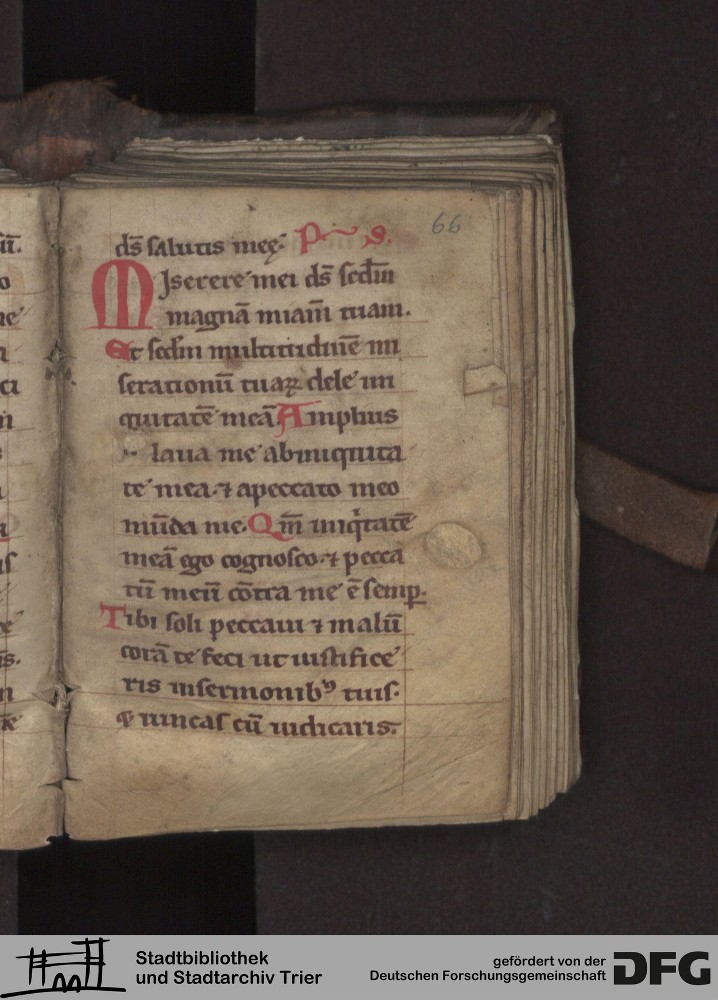 66
ds̄ salutis meę. P~s.
MJserere mei ds̄ scd̄m
magnā miam̄ tuam.
Et scd̄m multitudinē mi
serationū tuaꝝ dele in
quitatē meā Amplius
laua me ab iniquita
te mea. ⁊ a peccato meo
mūda me. Qm̄ iniqͥtatē
meā ego cognosco. ⁊ pecca
tū meū cōtra me ē semp̱.
Tibi soli peccaui ⁊ malū
corā te feci ut iustifice
ris in sermonibꝰ tuis.
⁊ uincas cū iudicaris.
Stadtbibliothek
und Stadtarchiv Trier
gefördert von der
Deutschen Forschungsgemeinschaft
DFG